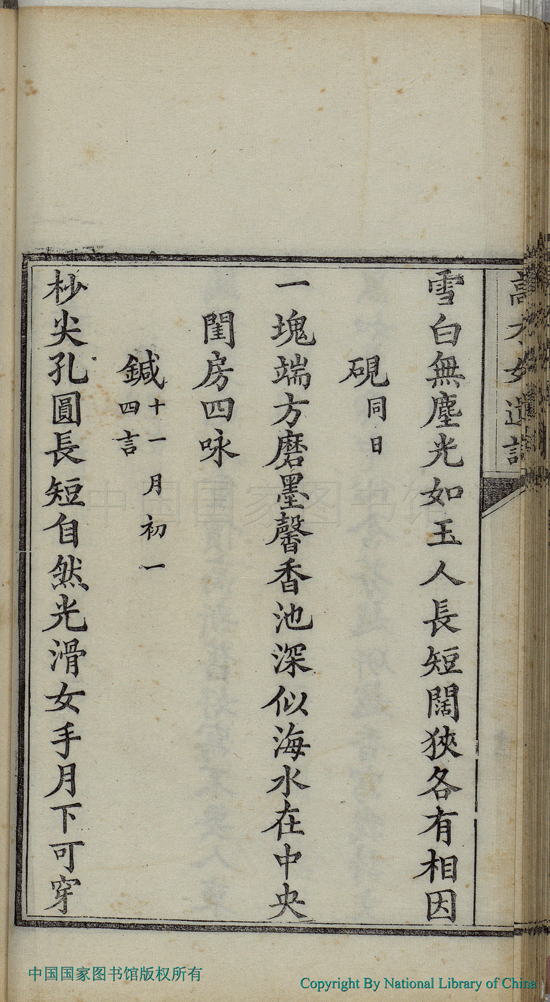 雪白無塵光如玉人長短闊狹各有相因
硯同日
一塊端方磨墨馨香池深似海水在中央
閨房四咏
鍼十一月初一四言
杪尖孔圓長短自然光滑女手月下可穿
中国国家图书馆
中国国家图书馆版权所有
Copyright By National Library of China